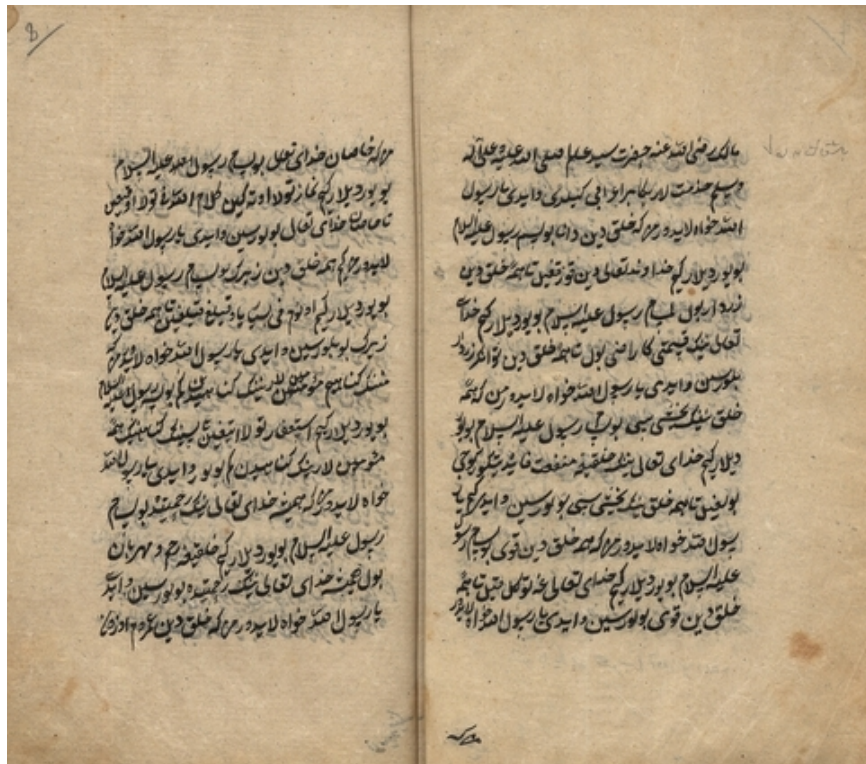 مالک رضی الله عنه حضرت سید عالم صلی الله علیه و علی آله
وسلم خدمت لاریکا بر اعرابی کیلدی و ایدی یا رسول
الله خواه لایدورمن که خلق دین دانا بولسم رسول علیه السلام
بویوردیلار کیم خداوند تعالی دین قورقغیل تا همه خلق دین
رسول علیه السلام بویوردیلار کیم خدای
تعالی نینک قیمتی کا راضی بول تا همه خلق دین توانکرراق
بولورسین و ایدی یا رسول الله خواه لایدورمن که همه
خلق نینک یخشی سی بولسام رسول علیه السلام بویور
دیلار کیم خدای تعالی نینک خلقیغه منفعت فایده تیکورکوچی
بولغیل تا همه خلق نینک یخشی سی بولورسین و ایدی یا
رسول الله خواه لایدورمن که همه خلق دین قوی بولسام رسول
علیه السلام بویوردیلار کیم خدای تعالی غه توکل قیل تا همه
خلق دین قوی بولورسین و ایدی یا رسول الله خواه لایدور
من که
8
من که خاصان خدای تعالی بولسام رسول الله علیه السلام
بویوردیلار کیم نماز تولا اوته کین کلام الله نی تولا اوقوغیل
تا خاصان خدای تعالی بولورسین و ایدی یا رسول الله خواه
لایدورمن کیم همه خلق دین زیرک بولسام رسول علیه السلام
بویوردیلار کیم اولوم نی یاد قیلغیل تا همه خلق دین
زیرک بولورسین و ایدی یا رسول الله خواه لایدورمن که
مننک کناهیم مؤمن لار نینک کناهیدین کم بولسه رسول علیه السلام
بویوردیلار کیم استغفار تولا ایتغیل تا سینک کناهینک همه
مؤمن لار نینک کناهیدین کم بولور و ایدی یا رسول الله
خواه لایدورمن که همیشه خدای تعالی نینک رحمتیده بولسام
رسول علیه السلام بویوردیلار کیم خلقیغه رحم و مهربان
بول همیشه خدای تعالی نینک رحمتیده بولورسین و ایدی
یا رسول الله خواه لایدورمن که خلق دین